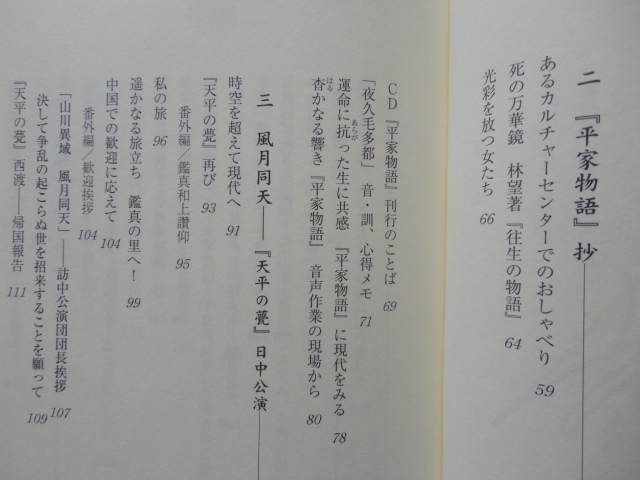 二 『平家物語』抄
あるカルチャーセンターでのおしゃべり 59
死の万華鏡 林望著『往生の物語』 64
光彩を放つ女たち 66
CD『平家物語』刊行のことば 69
「夜久毛多都」音・訓、心得メモ 71
運命に抗った生に共感 『平家物語』に現代をみる 78
杳かなる響き 『平家物語』 音声作業の現場から 80
三 風月同天――『天平の甍』日中公演
時空を超えて現代へ 91
『天平の甍』再び 93
番外編/鑑真和上讃仰 95
私の旅 96
遥かなる旅立ち 鑑真の里へ! 99
中国での歓迎に応えて 104
番外編/歓迎挨拶 104
「山川異域 風月同天」――訪中公演団団長挨拶 107
決して争乱の起こらぬ世を招来することを願って 109
『天平の甍』西渡――帰国報告 111